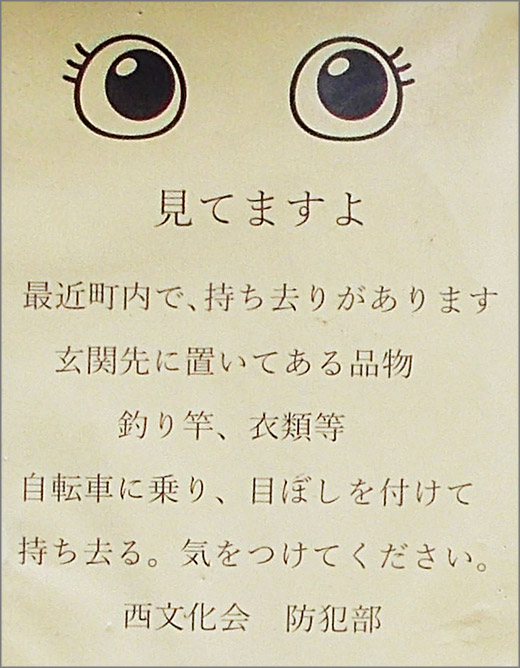 見てますよ
最近町内で、持ち去りがあります
玄関先に置いてある品物
釣り竿、衣類等
自転車に乗り、目ぼしを付けて
持ち去る。気をつけてください。
西文化会　防犯部